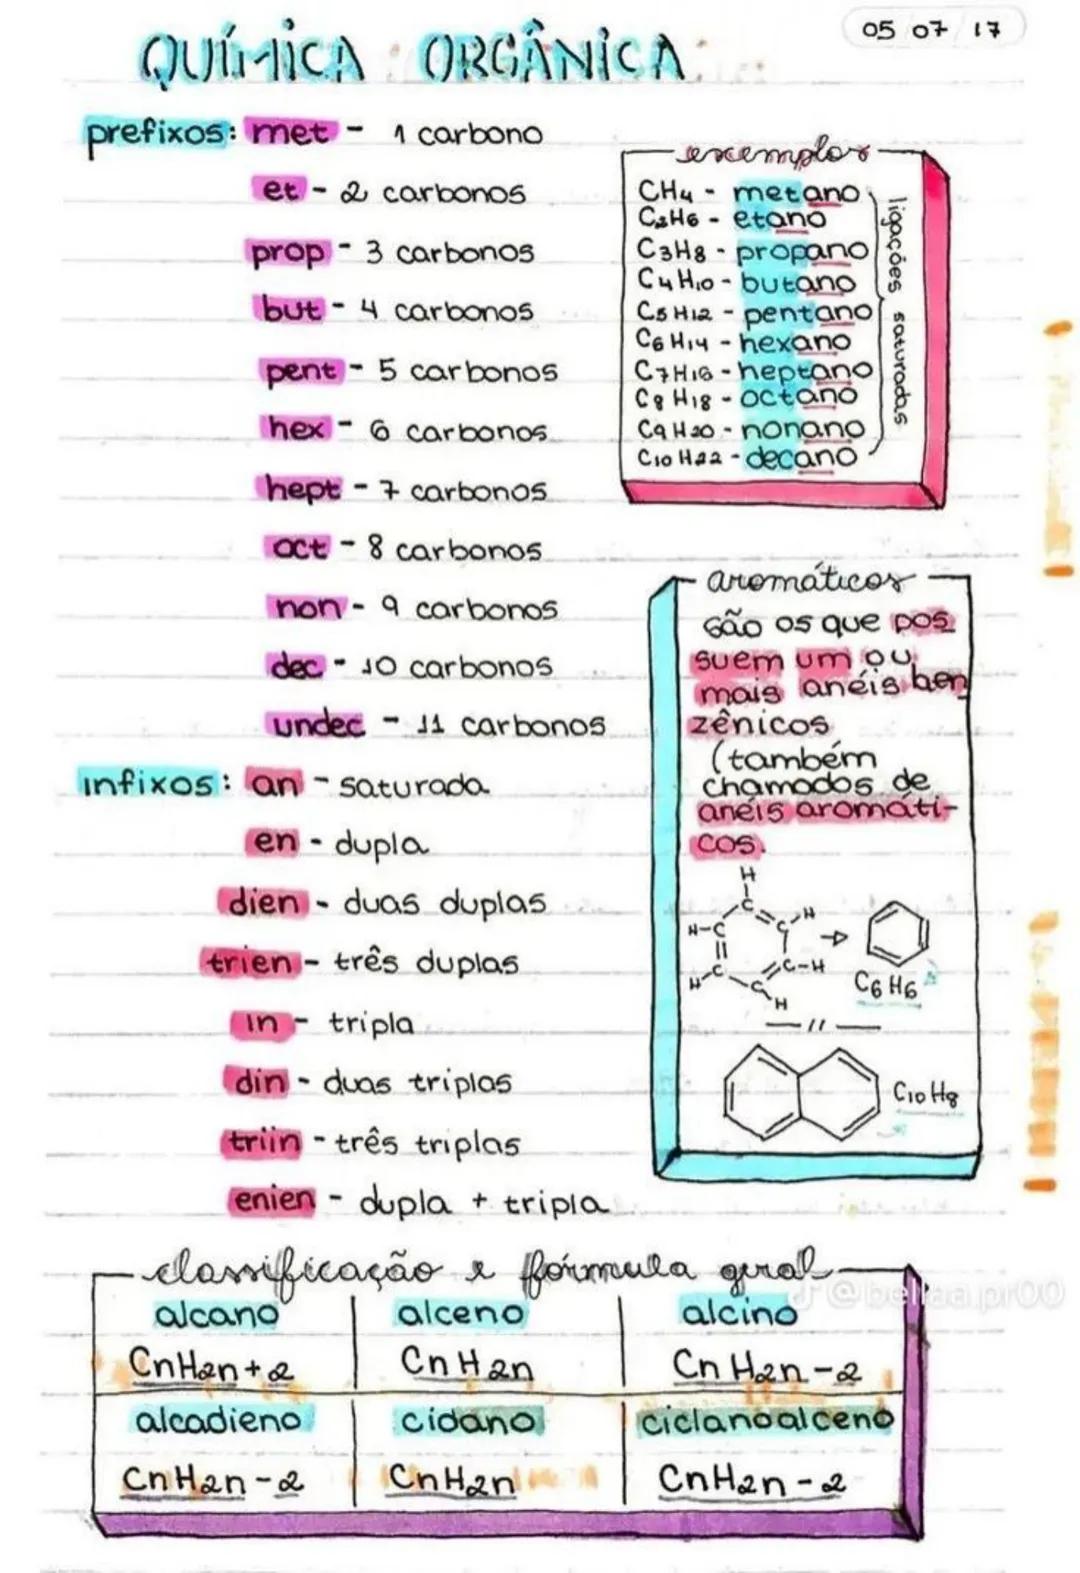 05 07 17
QUÍMICA ORGÂNICA
prefixos: met - 1 carbono
et - 2 carbonos
prop - 3 carbonos
but - 4 carbonos
pent - 5 carbonos
hex - 6 carbonos
hept - 7 carbonos
oct - 8 carbonos
non - 9 carbonos
dec - 10 carbonos
undec - 11 carbonos
infixos: an - saturada
en - dupla
dien - duas duplas
trien - três duplas
in - tripla
din - duas triplas
triin - três triplas
enien - dupla + tripla
exemplos
CH4 - metano
C2H6 - etano
C3H8 - propano
C4H10 - butano
C5H12 - pentano
C6H14 - hexano
C7H16 - heptano
C8H18 - octano
C9H20 - nonano
C10H22 - decano
ligações saturadas
aromáticos
são os que pos
suem um ou
mais anéis ben
zênicos
(também
chamados de
anéis aromáti-
cos.
H
C
C-H
H-C
C-H
H-C
C
H
C6H6
C10H8
classificação e fórmula geral
alcano alceno alcino
CnH2n+2 CnH2n CnH2n-2
alcadieno cidano ciclanoalceno
CnH2n-2 CnH2n CnH2n-2
@bellaa.pr00